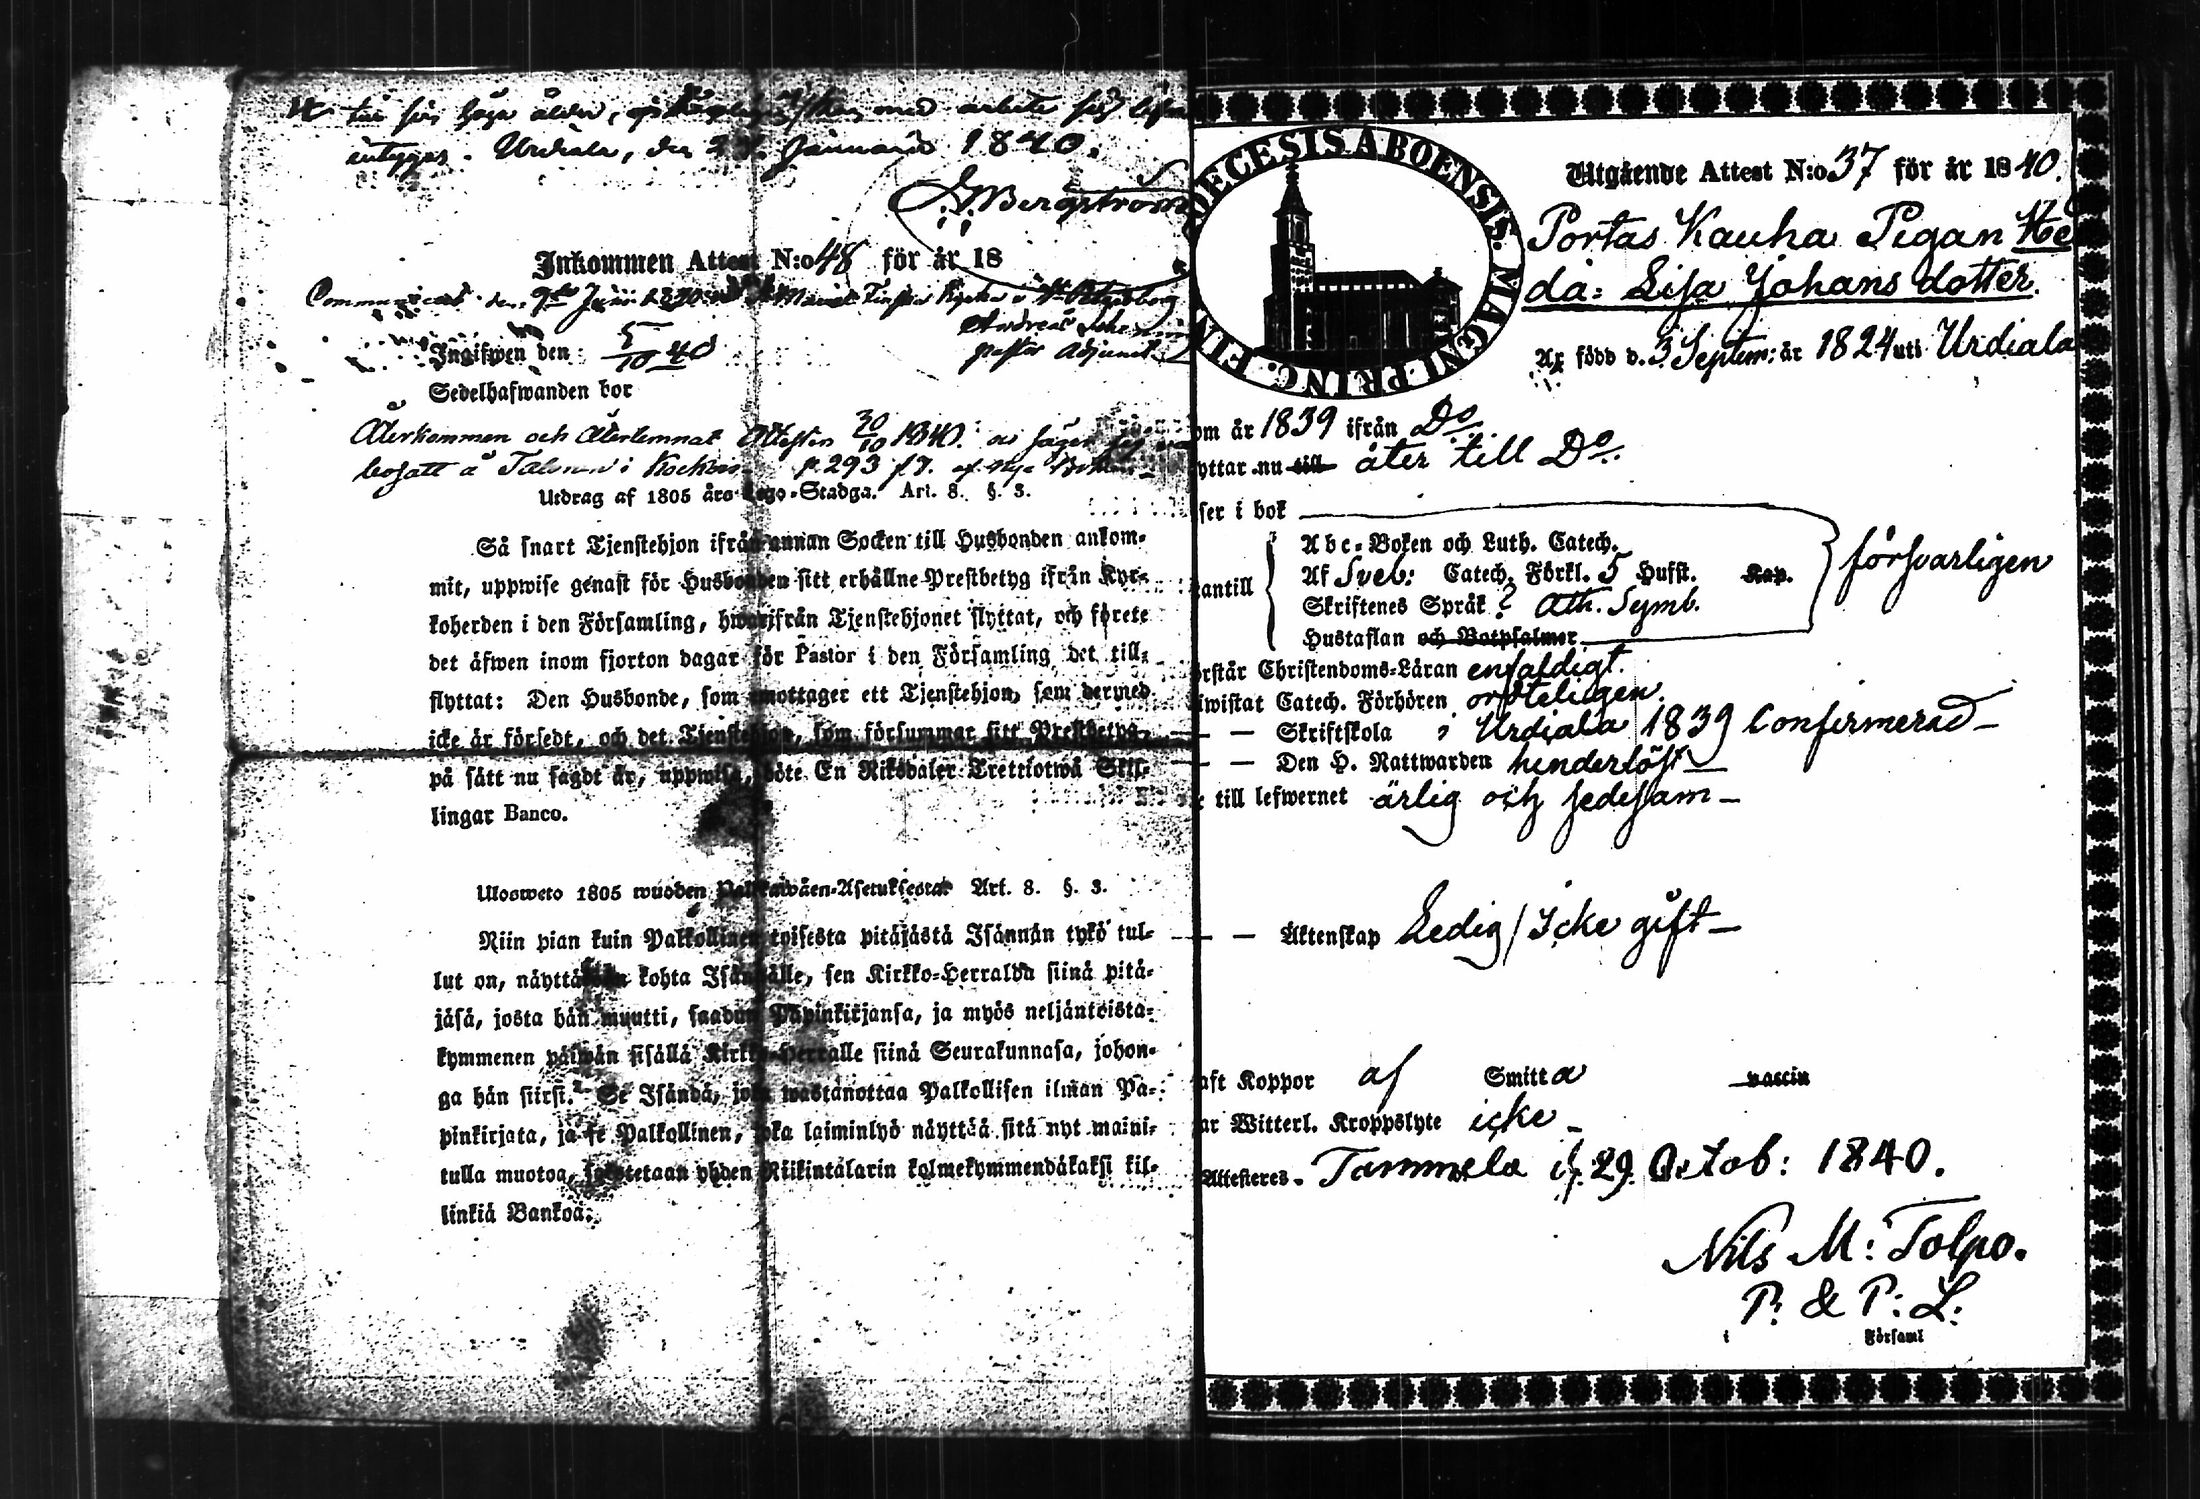 för sin höga ålder, med arbete
intygas. Urdiala, den Januarii 1840.
Bergström
Inkommen Attest N:o 48 för år 18
Communicerat den 9de Junii
Andreas
Pastor Adjunct
Ingifwen den 5/10 40
Sedelhafwanden bor
Återkommen och återlemnat Attesten 30/10 1840. säger sig
bosatt å i p. 293 af nya
Utdrag af 1805 års Lego-Stadga. Art. 8. §. 3.
Så snart Tjenstehjon ifrån annan Socken till Husbonden ankom-
mit, uppwise genast för Husbonden sitt erhållne Prestbetyg ifrån Kyr-
koherden i den Församling, hwarifrån Tjenstehjonet flyttat, och förete
det äfwen inom fjorton dagar för Pastor i den Församling det till-
flyttat: Den Husbonde, som emottager ett Tjenstehjon, som dermed
icke är försedt, och det Tjenstehjon, som försummar sitt Prestbetyg,
på sätt nu sagdt är, uppwisa, böte En Riksdaler Trettiotwå Skil-
lingar Banco.
Ulosweto 1805 wuoden Palkkawäen-Asetuksesta Art. 8. §. 3.
Niin pian kuin Palkollinen toisesta pitäjästä Isännän tykö tul-
lut on, näyttäkään kohta Isännälle, sen Kirkko-Herralda siinä pitä-
jäsä, josta hän muutti, saadun Papinkirjansa, ja myös neljäntoista-
kymmenen päiwän sisällä Kirkko-Herralle siinä Seurakunnasa, johon-
ga hän siirsi. Se Isändä, joka wastanottaa Palkollisen ilman Pa-
pinkirjata, ja se Palkollinen, joka laiminlyö näyttää sitä nyt maini-
tulla muotoa, sakotetaan yhden Riikintalarin kolmekymmendäkaksi kil-
linkiä Bankoa.
DIOECESIS ABOENSIS. MAGNI PRINC. FIN
Utgående Attest N:o 37 för år 1840.
Portas Kauha Pigan He
da: Lisa Johans dotter.
Är född d. 3 Septem: år 1824 uti Urdiala
om år 1839 ifrån Do.
yttar nu till åter till Do.
ser i bok
Abc-Boken och Luth. Catech.
Af Sveb: Catech. Förkl. 5 Hufst. Kap.
försvarligen
antill
Skriftenes Språk ? Ath. Symb.
Hustaflan och Botpsalmer
rstår Christendoms-Läran enfaldigt.
iwistat Catech. Förhören ordteligen.
— — Skriftskola i Urdiala 1839 Confirmerad —
— — Den H. Nattwarden hinderlöst —
till lefwernet ärlig och sedesam —
— — Äktenskap Ledig / Icke gift —
aft Koppor af Smitta vaccin
ar Witterl. Kroppslyte icke —
Attesteres. Tammela d. 29 Octob: 1840.
Nils M: Tolpo.
P: & P: L:
i Församl